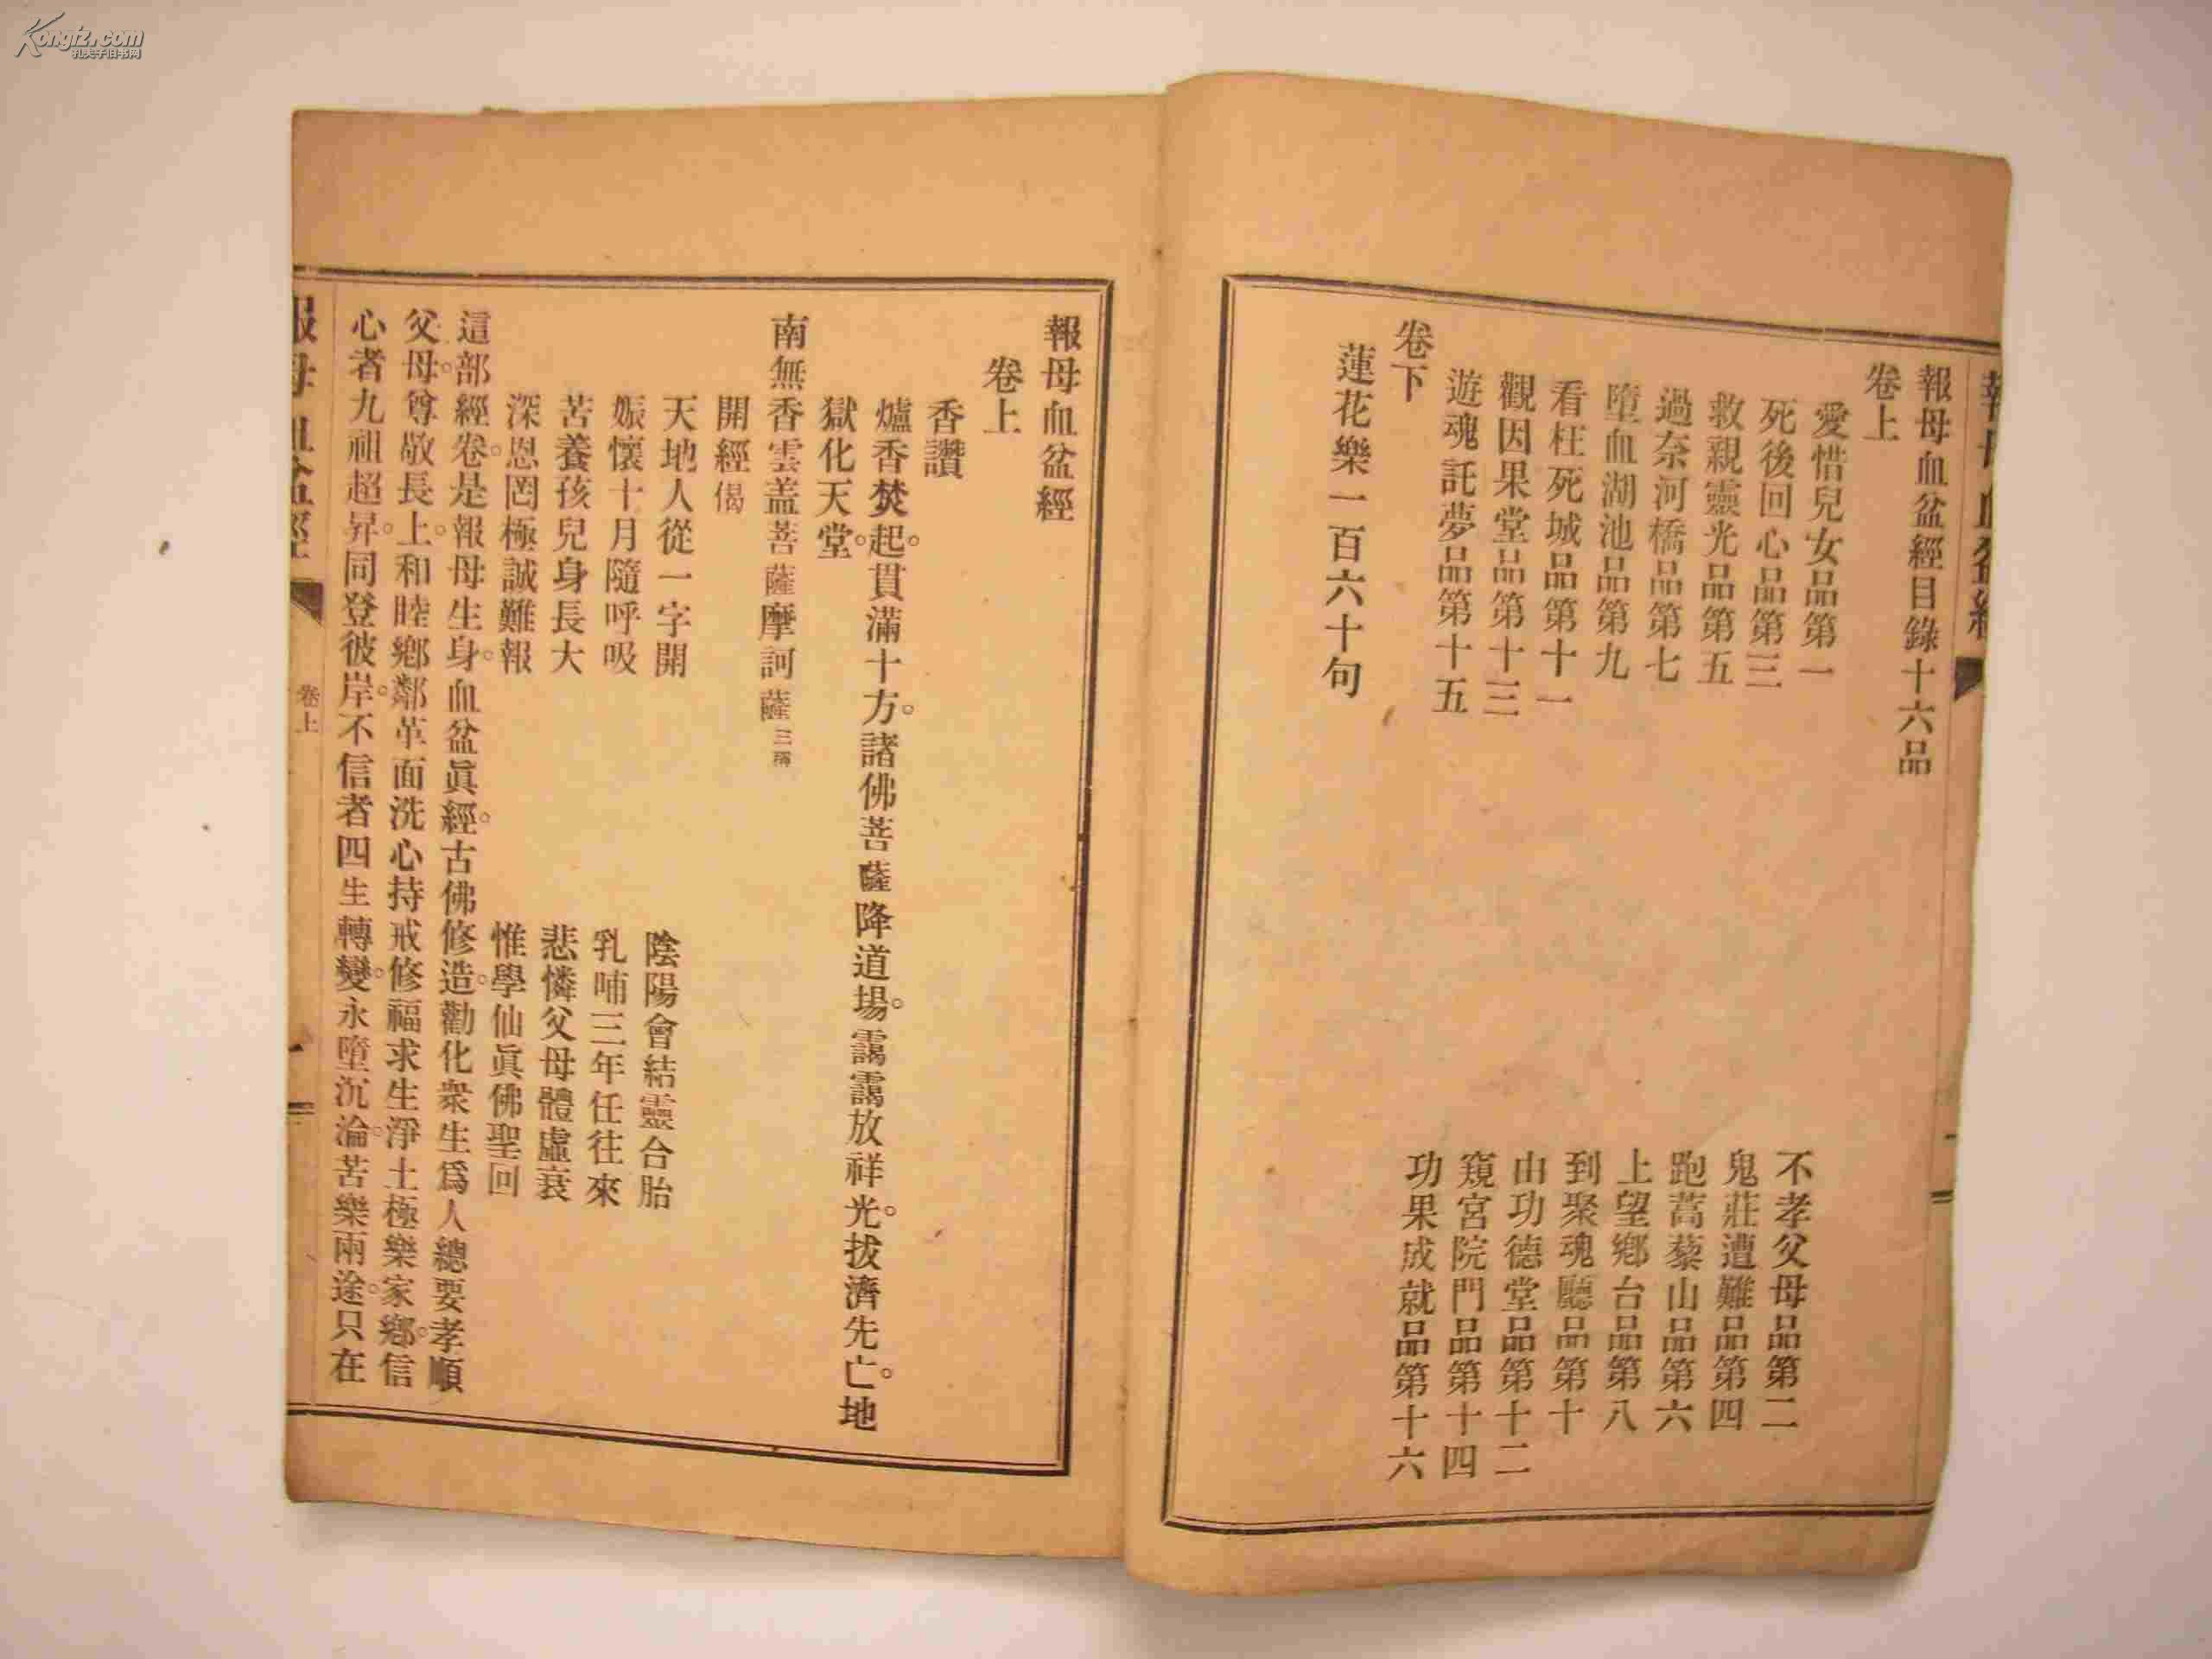 Kongfz.com
孔夫子旧书网
報母血盆經目錄十六品
卷上
愛惜兒女品第一
不孝父母品第二
死後回心品第三
鬼莊遭難品第四
救親靈光品第五
跑蒿藜山品第六
過奈河橋品第七
上望鄉台品第八
墮血湖池品第九
到聚魂廳品第十
看枉死城品第十一
由功德堂品第十二
觀因果堂品第十三
窺宮院門品第十四
遊魂託夢品第十五
功果成就品第十六
卷下
蓮花樂一百六十句
報母血盆經
卷上
香讚
爐香焚起。貫滿十方。諸佛菩薩降道場。靄靄放祥光。拔濟先亡。地
獄化天堂。
南無香雲盖菩薩摩訶薩三稱
開經偈
天地人從一字開 陰陽會結靈合胎
娠懷十月隨呼吸 乳哺三年任往來
苦養孩兒身長大 悲憐父母體虛衰
深恩罔極誠難報 惟學仙眞佛聖回
這部經卷。是報母生身。血盆眞經。古佛修造。勸化衆生爲人總要孝順
父母。尊敬長上。和睦鄕鄰革面洗心持戒修福求生淨土極樂家鄕。信
心者九祖超昇。同登彼岸。不信者四生轉變。永墮沉淪。苦樂兩途。只在
報母血盆經
卷上
一